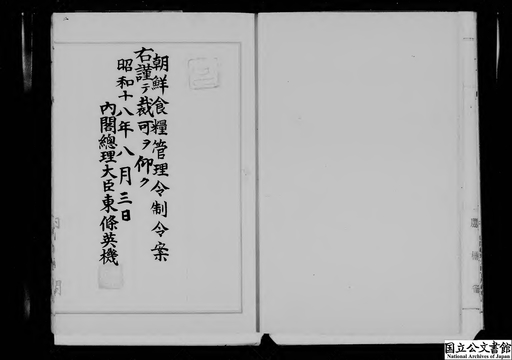 朝鮮食糧管理令制令案
右謹テ裁可ヲ仰ク
昭和十八年八月三日
內閣總理大臣東條英機
国立公文書館
National Archives of Japan